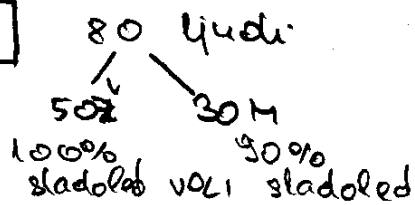 80 ljudi
50Ž 30M
100% 90%
sladoled voli sladoled